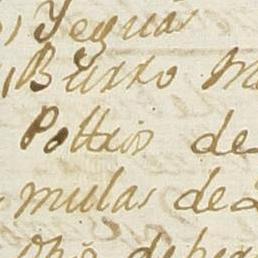 Yeguas
Burro M
Pottros de
mulas de2